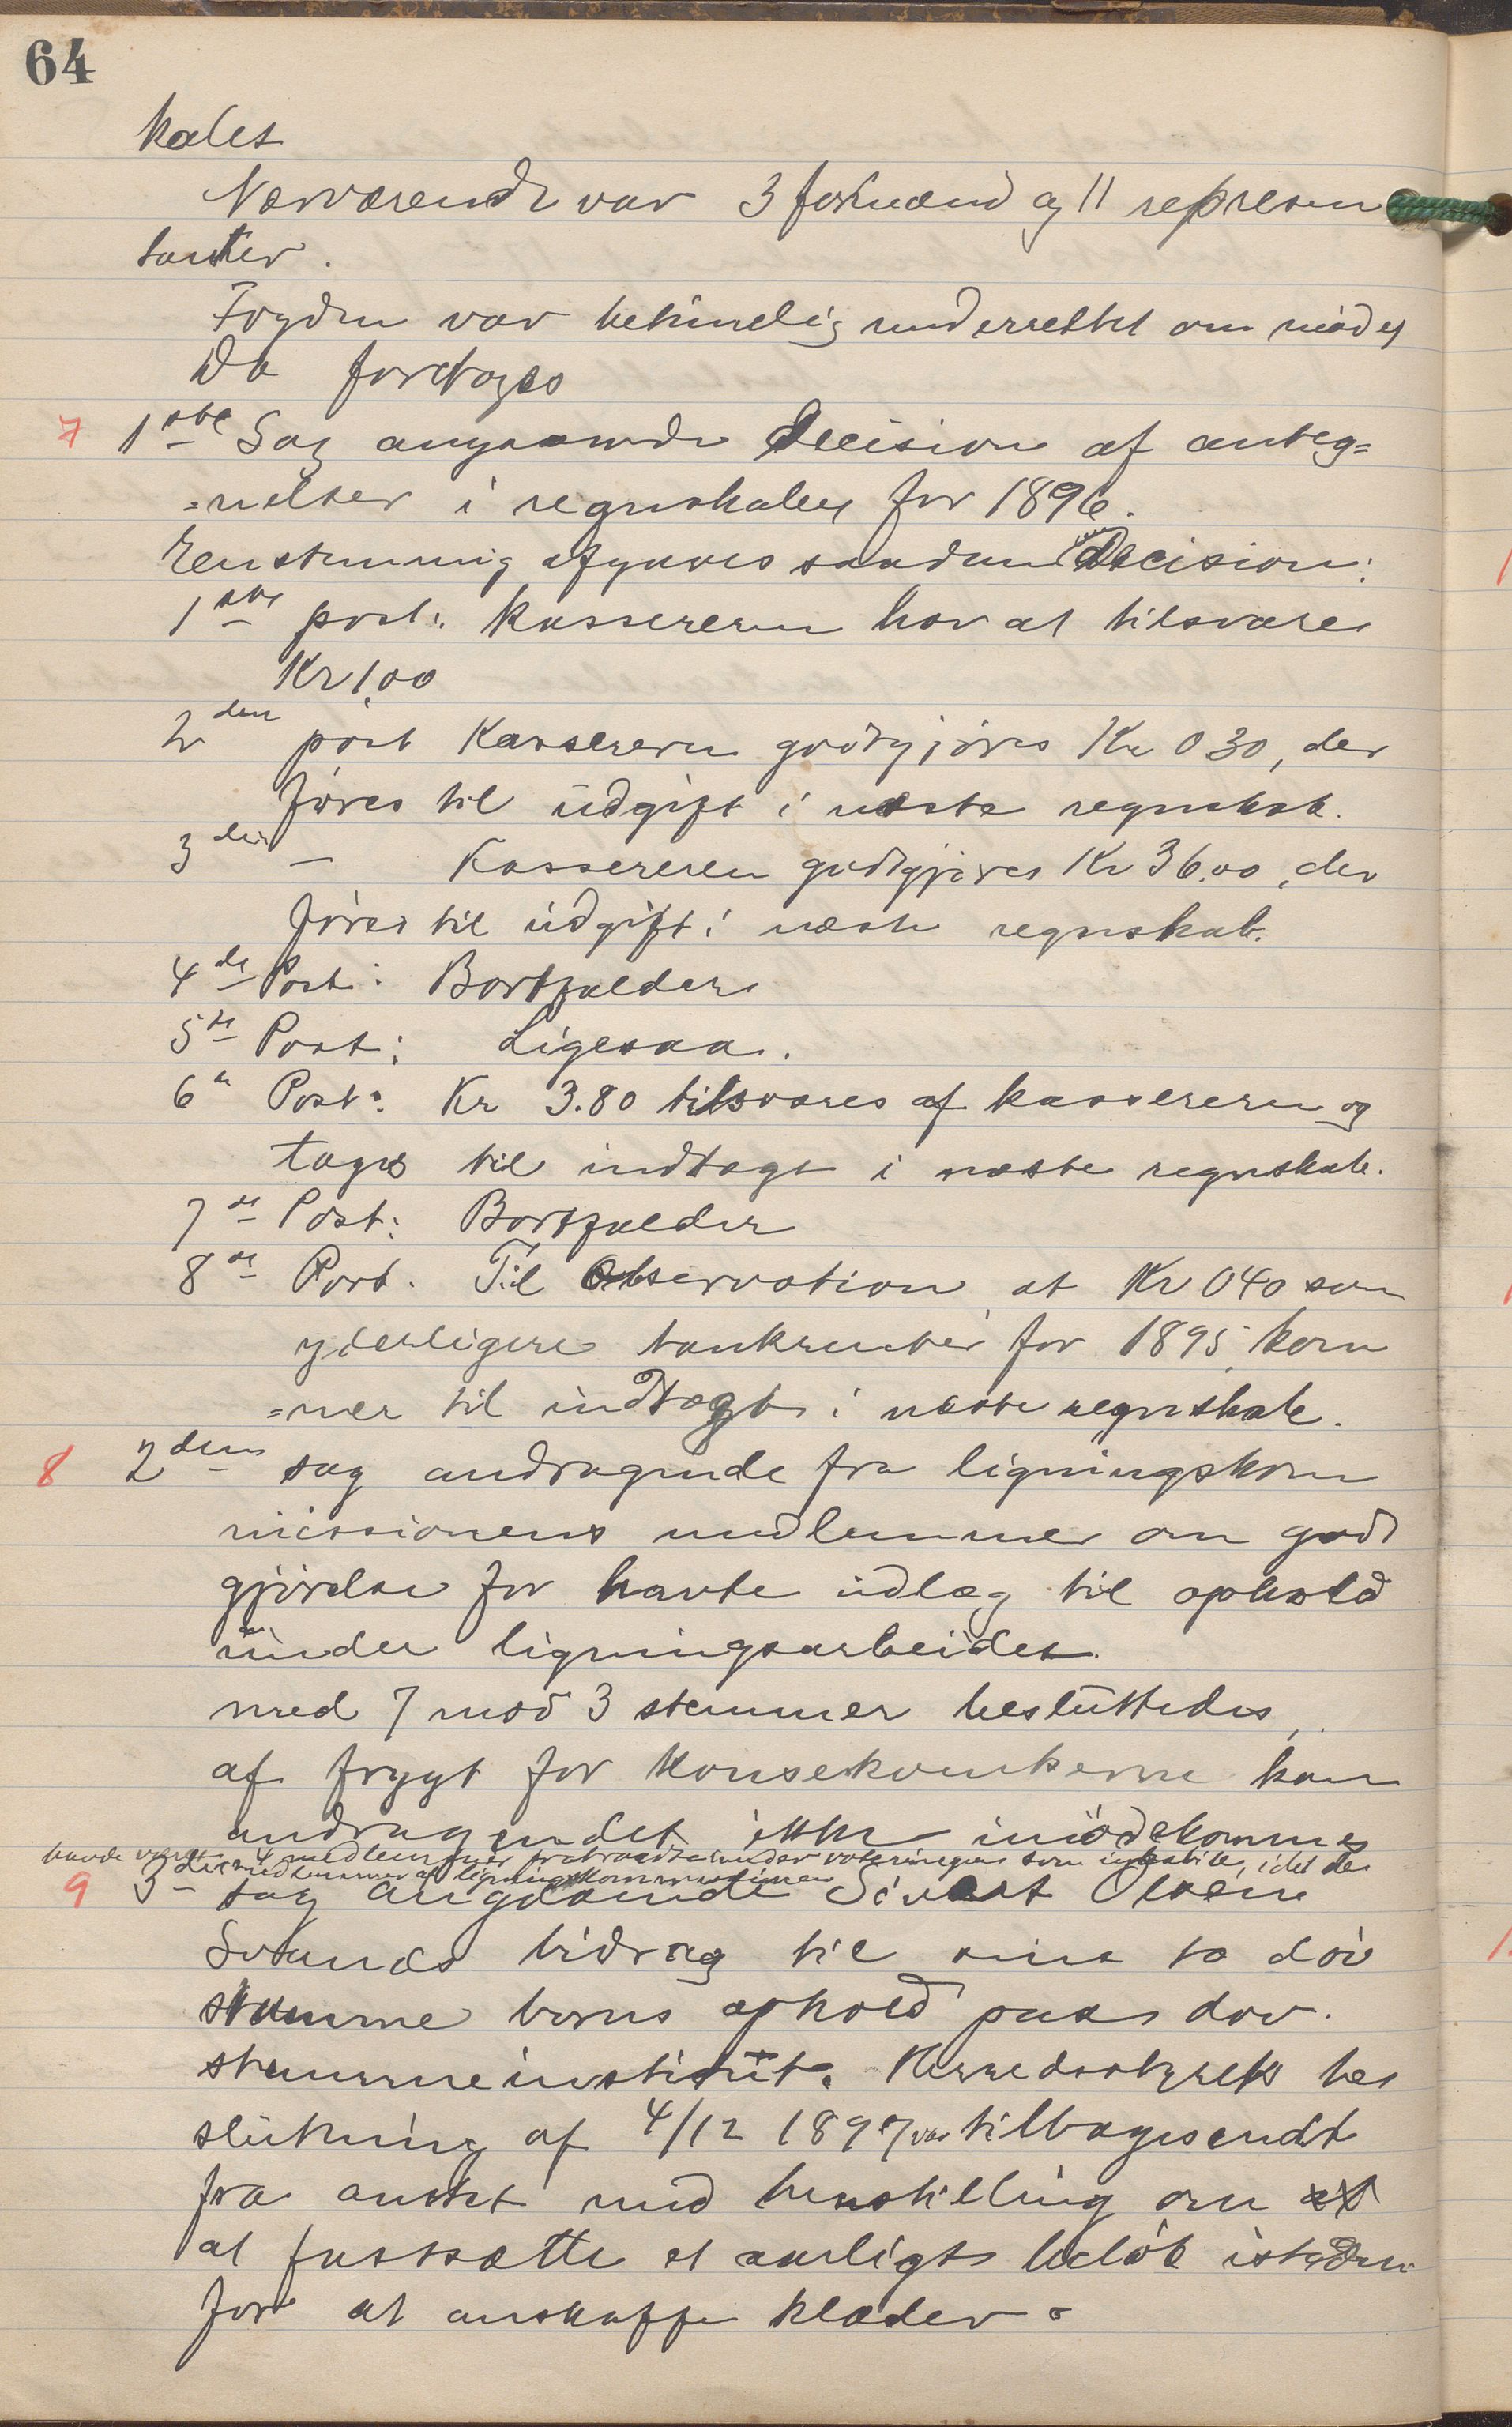 64
kalet
Nærværende var 3 formænd og 11 represen
tanter.
Fogden var betimelig underrettet om mödet
Da foretoges
7 1ste Sag angaaende Decision af anteg=
=nelser i regnskabet for 1896.
Eenstemmig afgaves saadan Decision:
1ste post: Kassereren har at tilsvare
Kr 1,00
2den post Kassereren godtgjöres Kr 0 30, der
föres til üdgift i næste regnskab.
3die — Kassereren godtgjöres Kr 36.00, der
föres til üdgift i næste regnskab.
4de Post: Bortfalder
5te Post: Ligesaa.
6te Post: Kr 3.80 tilsvares af kassereren og
tages til indtægt i næste regnskab.
7de Post: Bortfalder
8de Post. Til Observation at Kr 0 40 som
yderligere bankrenter for 1895, kom
=mer til indtægt i næste regnskab.
8 2den sag andragende fra ligningskom
missionens medlemmer om godt
gjörelse for havte üdlæg til ophold
ünder ligningsarbeidet.
med 7 mod 3 stemmer beslüttedes,
af frygt for Konsekventserne kan
andragendet ikke imödekommes
4 medlemmer fratraadte under voteringen som inhabile, idet de
havde været medlemmer af ligningskommissionen
9 3die sag angaaende Sivert Olsen
Svunds bidrag til sine to döv
stumme börns ophold paa döv.
stummeinstitüt. Herredsstyrets bes
slütning af 4/12 1897 var tilbagesendt
fra amtet med henstilling om
at fastsætte et aarligt belöb isteden
for at anskaffe klæder.